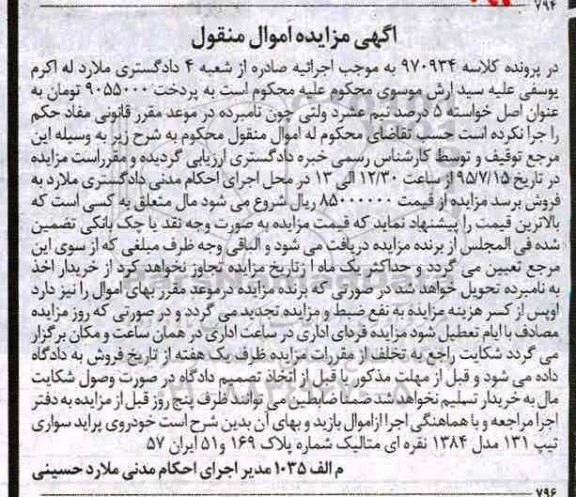 ۷۹۴
آگهی مزایده اموال منقول
در پرونده کلاسه ۹۷۰۹۳۴ به موجب اجرائیه صادره از شعبه ۴ دادگستری ملارد له اکرم
یوسفی علیه سید آرش موسوی محکوم علیه محکوم است به پرداخت ۹۰۵۵۰۰۰ تومان به
عنوان اصل خواسته ۵ درصد نیم عشرد ولتی چون نامبرده در موعد مقرر قانونی مفاد حکم
را جرا نکرده است حسب تقاضای محکوم له اموال منقول محکوم به شرح زیر به وسیله این
مرجع توقیف و توسط کارشناس رسمی خبره دادگستری ارزیابی گردیده و مقرراست مزایده
در تاریخ ۹۵/۷/۱۵ از ساعت ۱۲/۳۰ الی ۱۳ در محل اجرای احکام مدنی دادگستری ملارد به
فروش برسد مزایده از قیمت ۸۵۰۰۰۰۰۰ ریال شروع می شود مال متعلق به کسی است که
بالاترین قیمت را پیشنهاد نماید که قیمت مزایده به صورت وجه نقد یا چک بانکی تضمین
شده فی المجلس از برنده مزایده دریافت می شود و الباقی وجه ظرف مبلغی که از سوی این
مرجع تعیین می گردد و حداکثر یک ماه ا زتاریخ مزایده تجاوز نخواهد کرد از خریدار اخذ
به نامبرده تحویل خواهد شد در صورتی که برنده مزایده درموعد مقرر بهای اموال را نیز دارد
اوپس از کسر هزینه مزایده به نفع ضبط و مزایده تجدید می گردد و در صورتی که روز مزایده
مصادف با ایام تعطیل شود مزایده فردای اداری در ساعت اداری در همان ساعت و مکان برگزار
می گردد شکایت راجع به تخلف از مقررات مزایده ظرف یک هفته از تاریخ فروش به دادگاه
داده می شود و قبل از مهلت مذکور یا قبل از اتخاذ تصمیم دادگاه در صورت وصول شکایت
مال به خریدار تسلیم نخواهد شد ضمنا ضابطین می توانند ظرف پنج روز قبل از مزایده به دفتر
اجرا مراجعه و با هماهنگی اجرا ازاموال بازید و بهای آن بدین شرح است خودروی پراید سواری
تیپ ۱۳۱ مدل ۱۳۸۴ نقره ای متالیک شماره پلاک ۱۶۹ و۵۱ ایران ۵۷
م الف ۱۰۳۵ مدیر اجرای احکام مدنی ملارد حسینی
۷۹۶